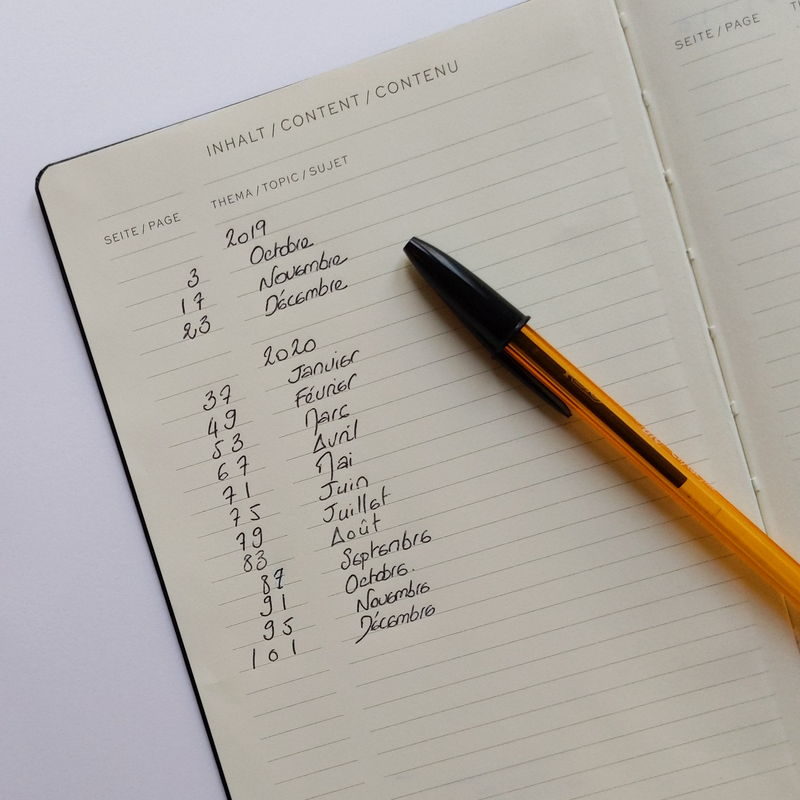 INHALT / CONTENT / CONTENU
SEITE / PAGE THEMA / TOPIC / SUJET
2019
3 Octobre
17 Novembre
23 Décembre
2020
37 Janvier
49 Février
53 Mars
67 Avril
71 Mai
75 Juin
79 Juillet
83 Août
87 Septembre
91 Octobre.
95 Novembre
101 Décembre
SEITE / PAGE